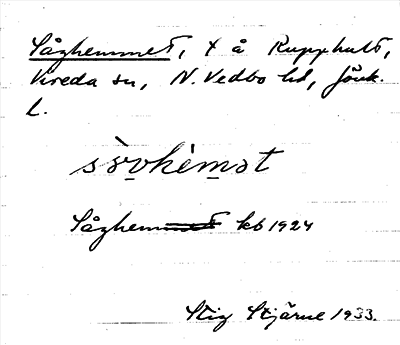 Såghemmet, t å Rupphult,
Vireda sn, N. Vedbo hd, Jönk.
L.
sòvhèmət
Såghemmet kb 1924
Stig Stjärne 1933.